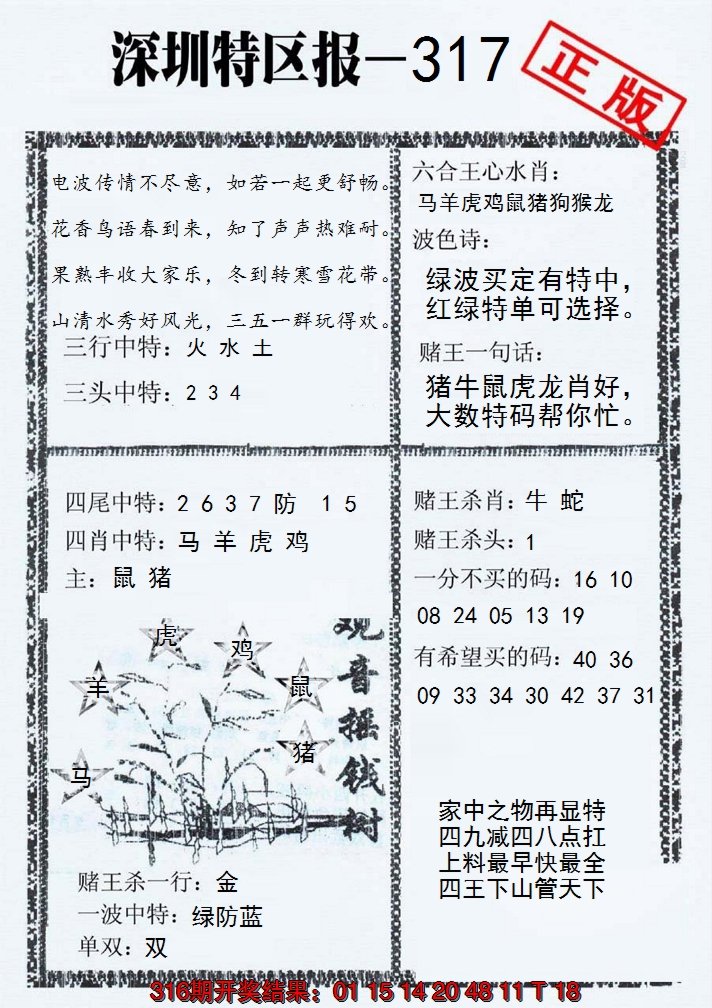 深圳特区报-317
正版
电波传情不尽意，如若一起更舒畅。
花香鸟语春到来，知了声声热难耐。
果熟丰收大家乐，冬到转寒雪花带。
山清水秀好风光，三五一群玩得欢。
三行中特：火 水 土
三头中特：2 3 4
六合王心水肖：
马羊虎鸡鼠猪狗猴龙
波色诗：
绿波买定有特中，
红绿特单可选择。
赌王一句话：
猪牛鼠虎龙肖好，
大数特码帮你忙。
四尾中特：2 6 3 7 防 1 5
四肖中特：马 羊 虎 鸡
主：鼠 猪
虎
鸡
羊
鼠
猪
马
观音摇钱树
赌王杀一行：金
一波中特：绿防蓝
单双：双
赌王杀肖：牛 蛇
赌王杀头：1
一分不买的码：16 10
08 24 05 13 19
有希望买的码：40 36
09 33 34 30 42 37 31
家中之物再显特
四九减四八点扛
上料最早快最全
四王下山管天下
316期开奖结果：01 15 14 20 48 11 T 18